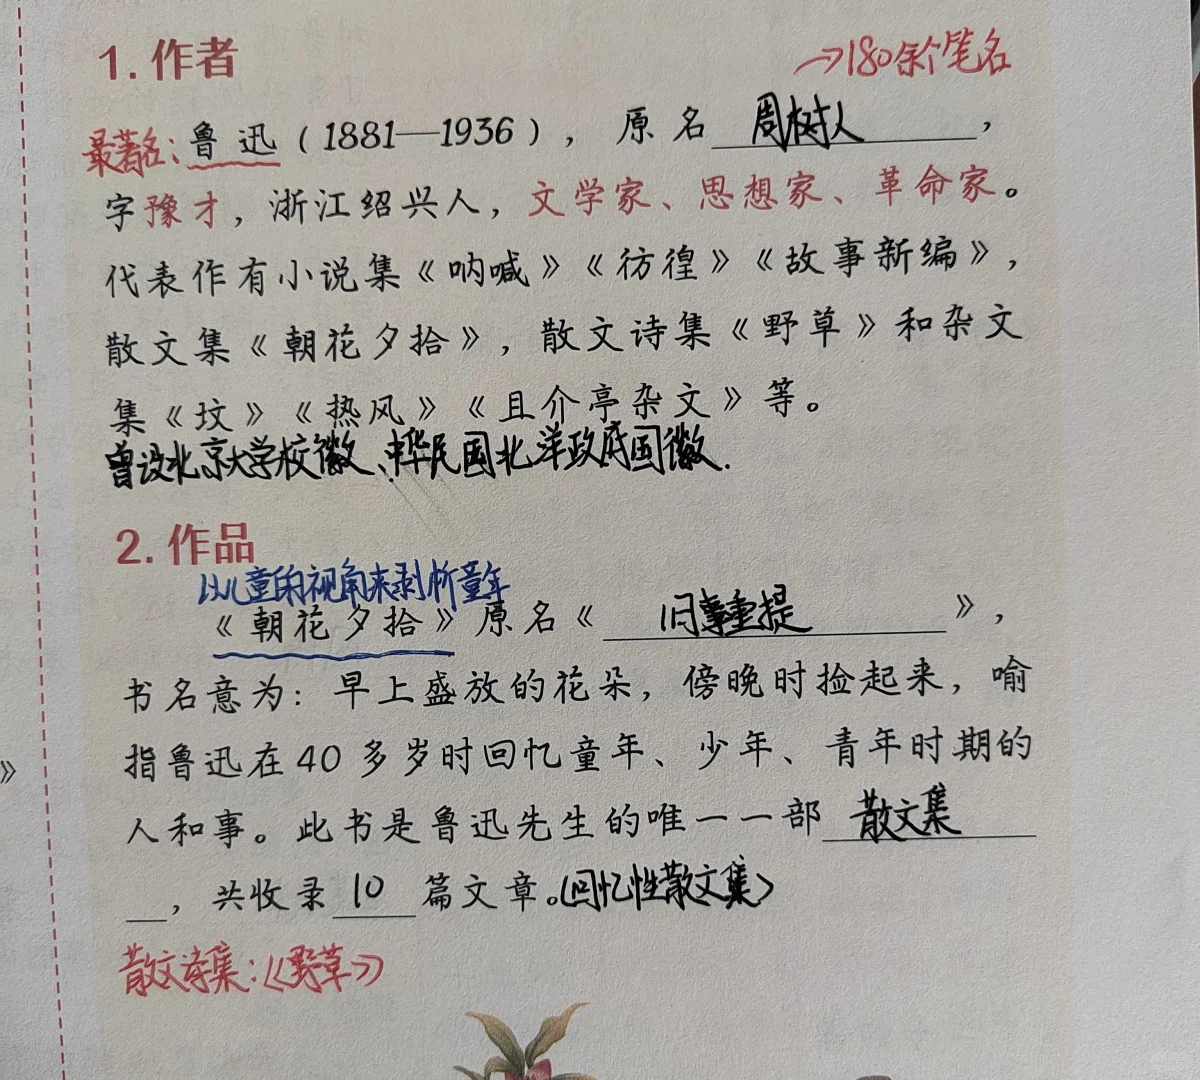 1. 作者
→180余个笔名
最著名：鲁迅（1881—1936），原名 周树人，
字豫才，浙江绍兴人，文学家、思想家、革命家。
代表作有小说集《呐喊》《彷徨》《故事新编》，
散文集《朝花夕拾》，散文诗集《野草》和杂文
集《坟》《热风》《且介亭杂文》等。
曾设北京大学校徽、中华民国北洋政府国徽.
2. 作品
以儿童的视角来剥析童年
《朝花夕拾》原名《 旧事重提 》，
书名意为：早上盛放的花朵，傍晚时捡起来，喻
指鲁迅在40多岁时回忆童年、少年、青年时期的
人和事。此书是鲁迅先生的唯一一部 散文集
，共收录 10 篇文章。（回忆性散文集）
散文诗集：《野草》
》